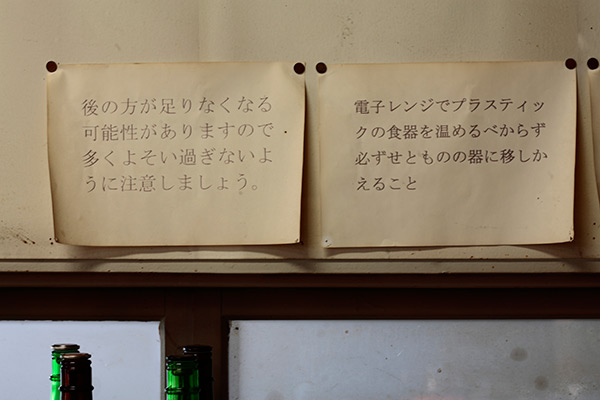 後の方が足りなくなる
可能性がありますので
多くよそい過ぎないよ
うに注意しましょう。
電子レンジでプラスティッ
クの食器を温めるべからず
必ずせとものの器に移しか
えること